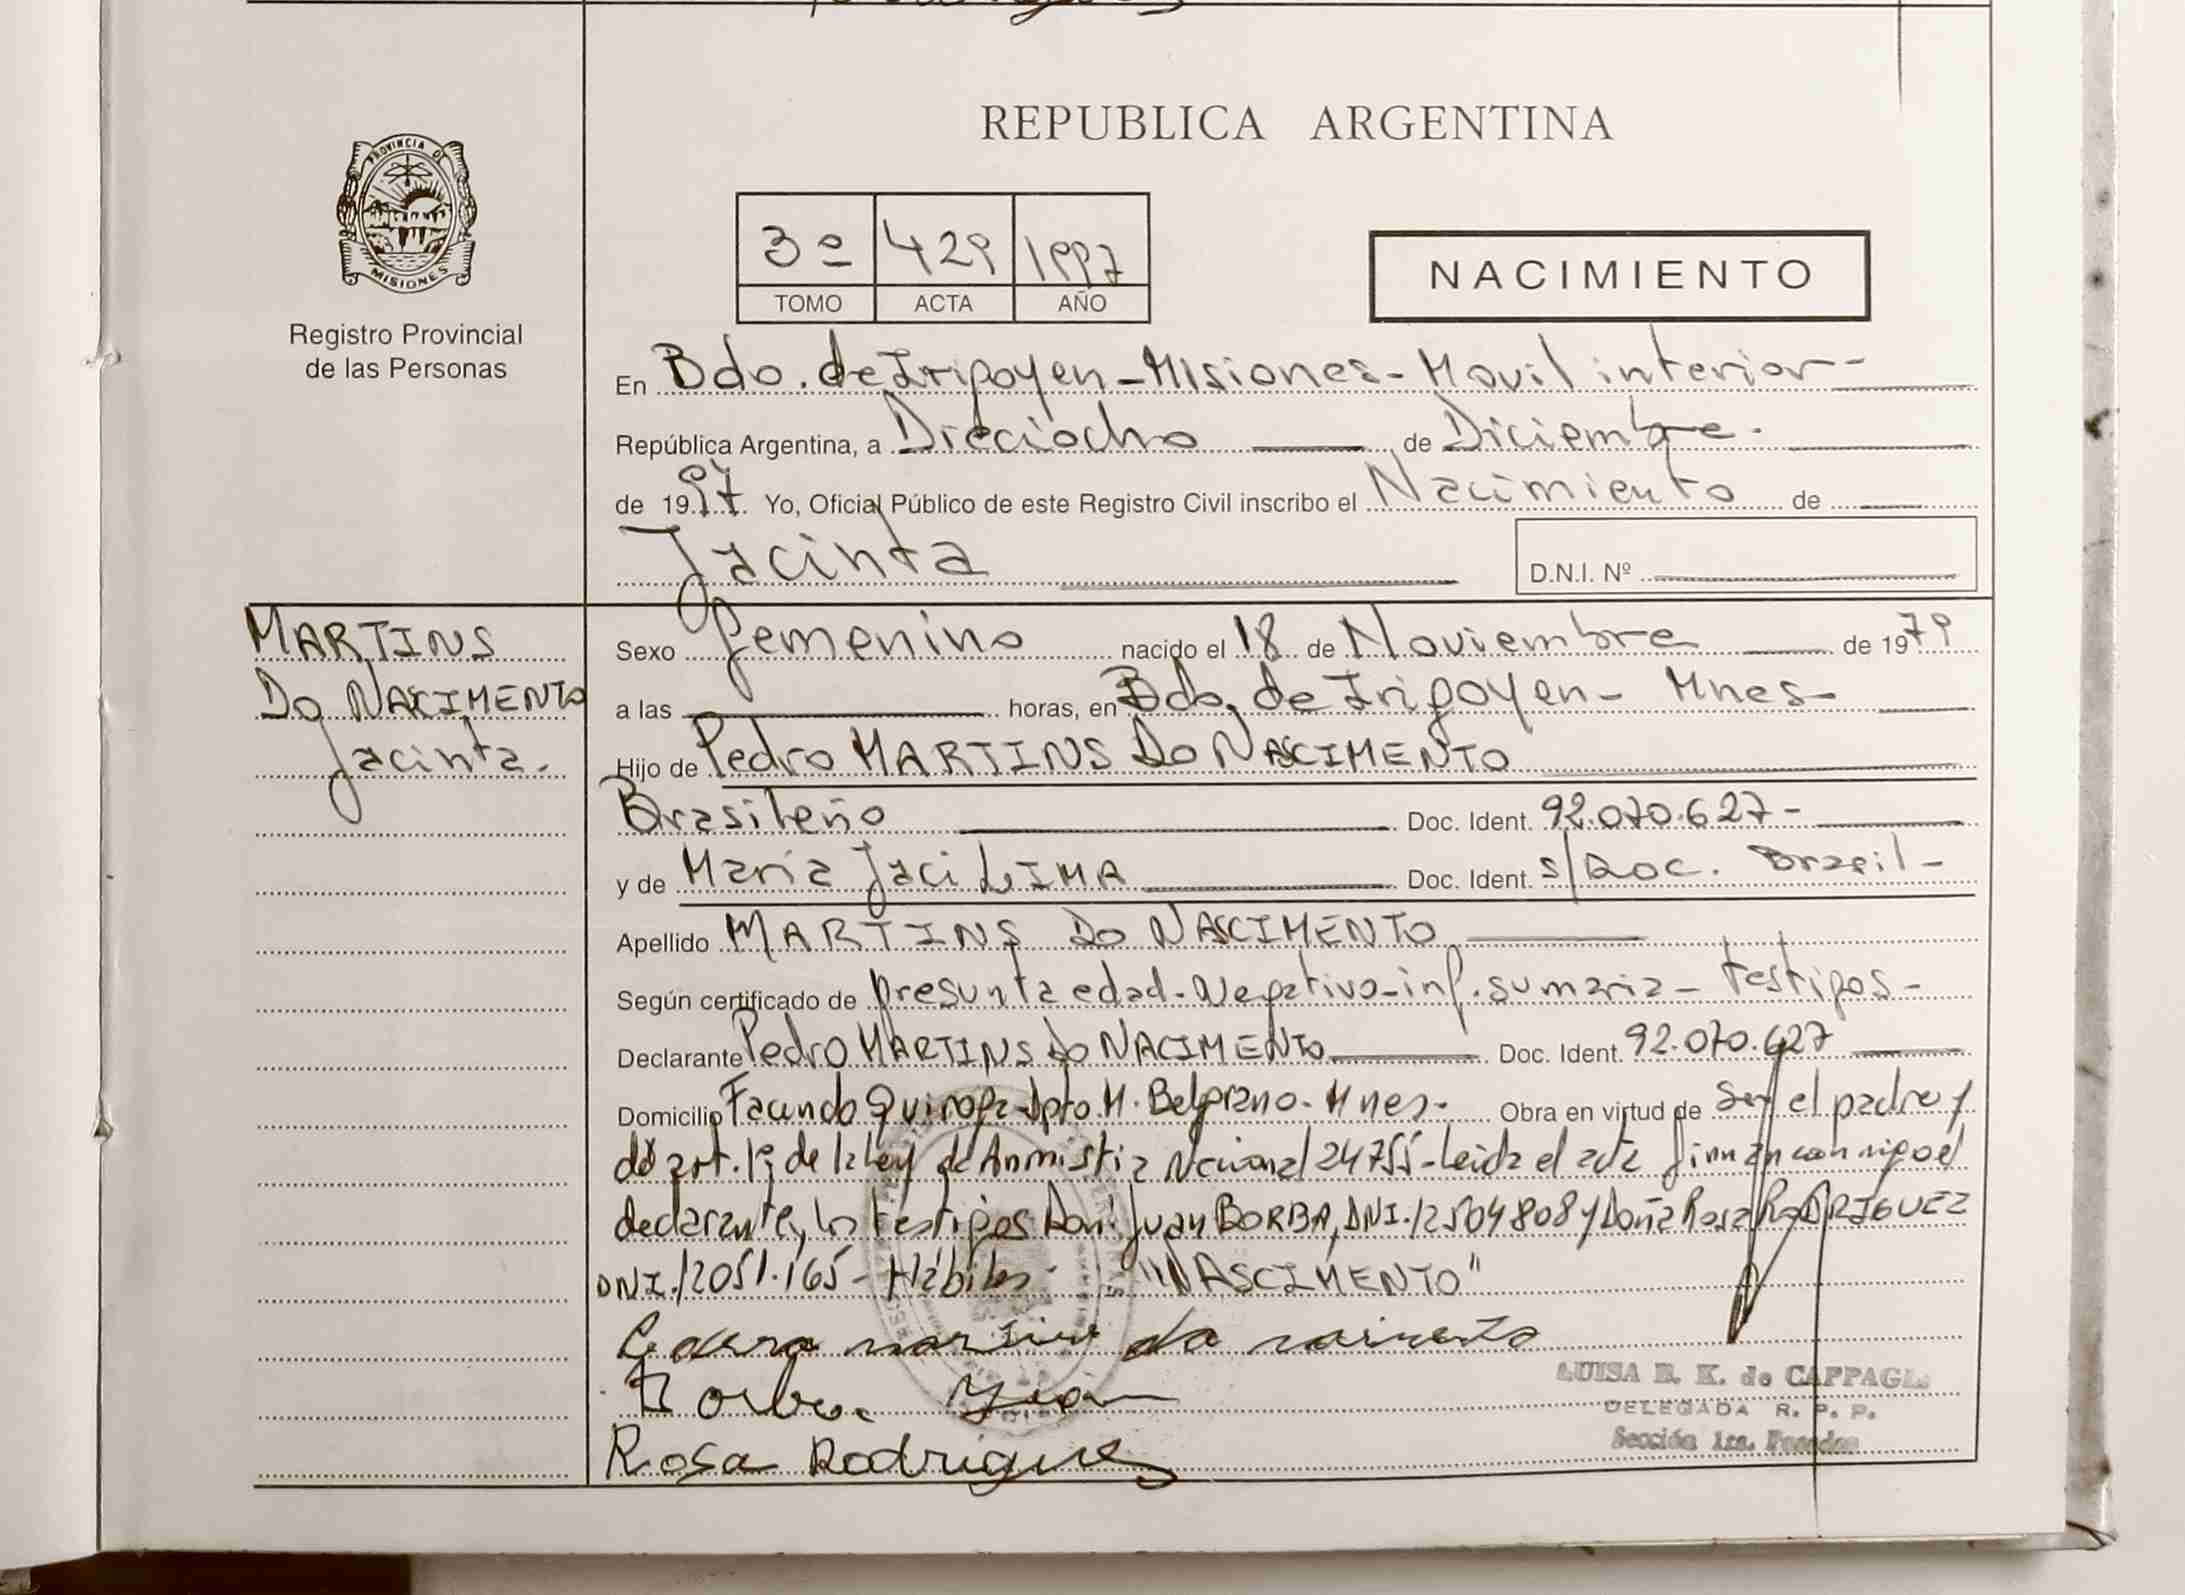 REPUBLICA ARGENTINA
PROVINCIA DE
MISIONES
Registro Provincial
de las Personas
3º 429 1997
TOMO ACTA AÑO
NACIMIENTO
En Bdo. de Irigoyen - Misiones - Movil interior -
República Argentina, a Dieciocho de Diciembre.
de 1997 Yo, Oficial Público de este Registro Civil inscribo el Nacimiento de
Jacinta
D.N.I. Nº
MARTINS
DO NASCIMENTO
Jacinta.
Sexo femenino nacido el 18 de Noviembre de 1979
a las horas, en Bdo. de Irigoyen - Mnes -
Hijo de Pedro MARTINS DO NASCIMENTO
Brasileño Doc. Ident. 92.070.627 -
y de Maria Jaci LIMA Doc. Ident. s/Doc. Brasil -
Apellido MARTINS DO NASCIMENTO
Según certificado de presunta edad - Negativo - inf. sumaria - testigos -
Declarante Pedro MARTINS DO NACIMENTO Doc. Ident. 92.070.627
Domicilio Facundo Quiroga - Dpto. M. Belgrano - Mnes - Obra en virtud de ser el padre y
del art. 1º; de la ley de Anmistia Nacional 24755 - Leida el acta firman conmigo el
declarante, los testigos Don: Juan BORBA, DNI. 12504808 y Doña Rosa RODRIGUEZ
DNI. 12051.165 - Hábiles - "NASCIMENTO"
Pedro martins do
Borba. Juan
Rosa Rodrigues
LUISA E. K. de CAPPAGLI
DELEGADA R. P. P.
Sección 1ra. Posadas